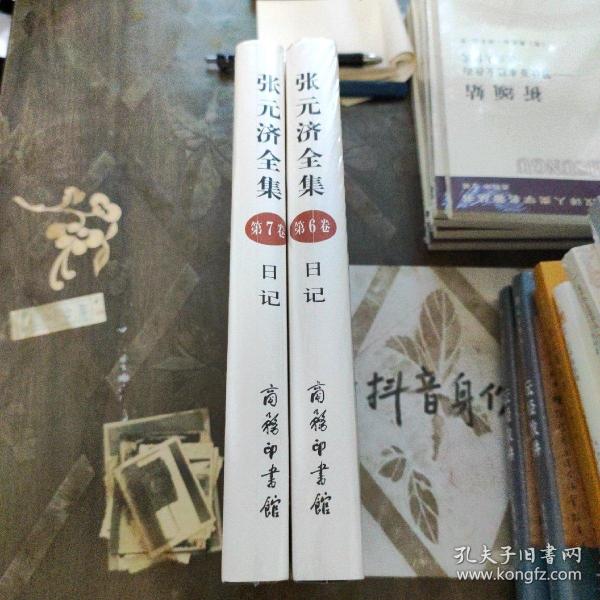 张元济全集
第7卷
日记
商務印書館
张元济全集
第6卷
日记
商務印書館
祈颂姑
抖音身份
孔夫子旧书网
www.kongfz.com